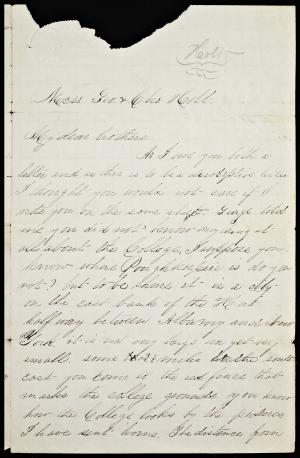 Holt
Mess. Geo. & Chs Holt.
My dear brothers
As I owe you both a
letter and as this is to be a descriptive letter
I thought you would not care if I
wrote you on the same sheet. George told
me you did not know anything
about the College, I suppose you
know where Poughkeepsie is do you
not? but to be sure it is a city
on the east bank of the
half way between Albany and New
York it is not very large as yet very
small. some 2 miles south
east you come to the red fence that
marks the college grounds you know
how the College looks by the pictures
I have sent home. The distance from